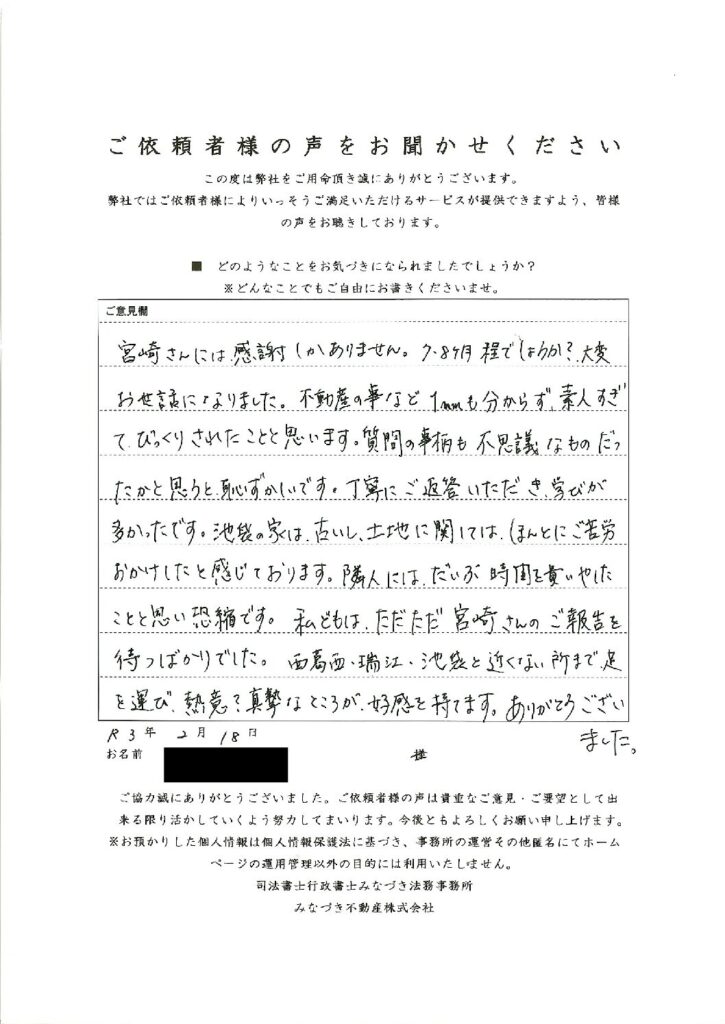 ご依頼者様の声をお聞かせください
この度は弊社をご用命頂き誠にありがとうございます。
弊社ではご依頼者様によりいっそうご満足いただけるサービスが提供できますよう、皆様
の声をお聴きしております。
■ どのようなことをお気づきになられましたでしょうか？
※どんなことでもご自由にお書きくださいませ。
ご意見欄
宮崎さんには、感謝しかありません。7・8ヶ月程でしょうか？、大変
お世話になりました。不動産の事など1mmも分からず、素人すぎ
て、びっくりされたことと思います。質問の事柄も不思議なものだっ
たかと思うと、恥ずかしいです。丁寧にご返答いただき、学びが
多かったです。池袋の家は、古いし、土地に関しては、ほんとにご苦労
おかけしたと感じております。隣人には、だいぶ時間を費いやした
ことと思い恐縮です。私どもは、ただただ宮崎さんのご報告を
待つばかりでした。西葛西・瑞江・池袋と近くない所まで、足
を運び、熱意？真摯なところが、好感を持てます。ありがとうござい
ました。
R3年 2月 18日
お名前 様
ご協力誠にありがとうございました。ご依頼者様の声は貴重なご意見・ご要望として出
来る限り活かしていくよう努力してまいります。今後ともよろしくお願い申し上げます。
※お預かりした個人情報は個人情報保護法に基づき、事務所の運営その他匿名にてホーム
ページの運用管理以外の目的には利用いたしません。
司法書士行政書士みなづき法務事務所
みなづき不動産株式会社